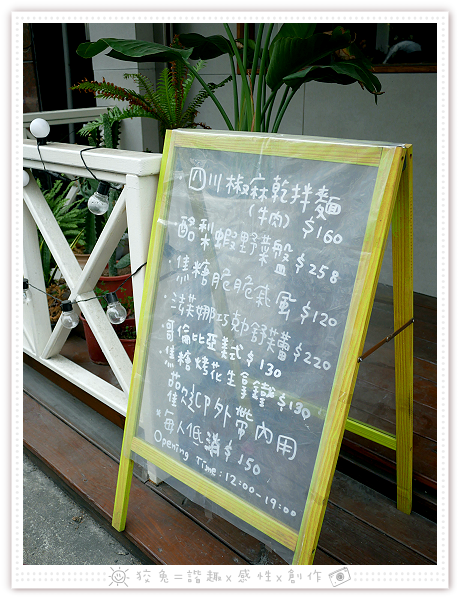 四川椒麻乾拌麵
(牛肉) $160
酪梨蝦野菜盤 $258
·焦糖脆脆氣風 $120
·法芙娜巧勃舒芙蕾 $220
·哥倫比亞美式 $130
·焦糖烤花生拿鐵 $130
外帶內用
*每人低消 $150
Opening Time: 12:00-19:00
狡兔=諧趣x感性x創作